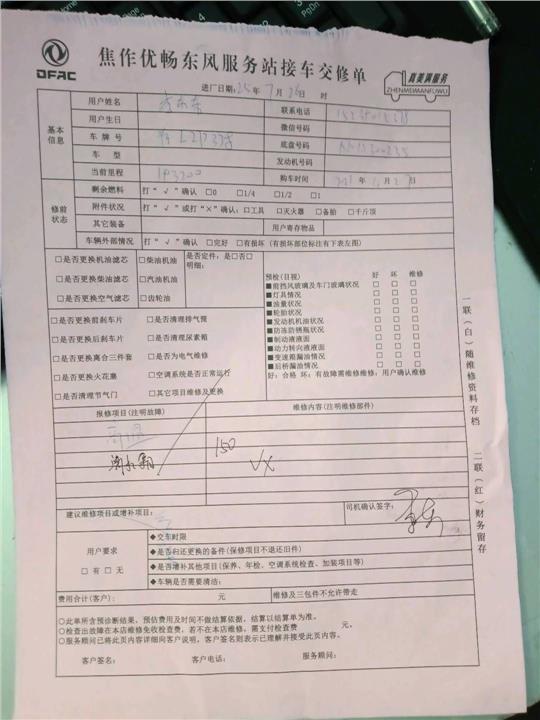 PgDn
DFAC
焦作优畅东风服务站接车交修单
真美满服务
ZHENMEIMANFUWU
进厂日期：25年 7月 26日 时
基本信息
用户姓名
联系电话
用户生日
微信号码
车牌号
底盘号码
车型
发动机号码
当前里程 193200
购车时间 年 月 日
修前状态
剩余燃料 打“√”确认 □0 □1/4 □1/2 □1
附件状况 打“√”或打“×”确认：□工具 □灭火器 □备胎 □千斤顶
其它装备
用户寄存物品
车辆外部情况 打“√”确认 □完好 □有损坏（有损坏部位标注有下表左图）
□是否更换机油滤芯 □柴油机油
□是否更换柴油滤芯 □汽油机油
□是否更换空气滤芯 □齿轮油
是否定件：是□否□
明细：
□是否更换前刹车片 □是否清理排气预
□是否更换后刹车片 □是否清理尿素箱
□是否更换离合三件套 □是否为电气维修
□是否更换火花塞 □空调系统是否正常运行
□是否清理节气门 □其它项目维修及更换
预检（目视） 好 坏 维修
■前挡风玻璃及车门玻璃状况 □ □ □
■灯具情况 □ □ □
■油量状况 □ □ □
■轮胎状况 □ □ □
■发动机机油状况 □ □ □
■防冻防锈瓶状况 □ □ □
■制动液液面 □ □ □
■动力转向液液面 □ □ □
■变速箱漏油情况 □ □ □
■后桥漏油情况 □ □ □
好：合格 坏：有故障需维修维修：用户确认维修
报修项目（注明故障）
维修内容（注明维修部件）
150
VX
建议维修项目或增补项目：
司机确认签字：
用户要求
□有 □无
◆交车时限
◆是否归还更换的备件（保修项目不退还旧件）
◆是否增补其他项目（保养、年检、空调系统检查、加装项目等）
◆车辆是否需要清洁：
费用合计（客户）： 元
维修及三包件不允许带走
○此单所含预诊断结果，预估费用及时间不做结算依据，结算以结算单为准。
○检查出故障在本店维修免收检查费，若不在本店维修，需支付检查费 元。
○服务顾问已将此页内容详细向客户说明，客户签名则表示已理解并接受此页内容。
客户签名： 客户电话： 服务顾问：
一联（白）随维修资料存档
二联（红）财务留存